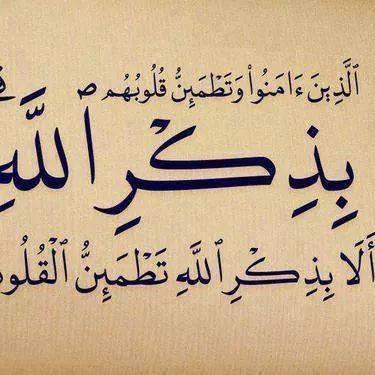 ٱلَّذِينَ ءَامَنُوا۟ وَتَطْمَئِنُّ قُلُوبُهُم ص
بِذِكْرِ ٱللَّهِ
أَلَا بِذِكْرِ ٱللَّهِ تَطْمَئِنُّ ٱلْقُلُو